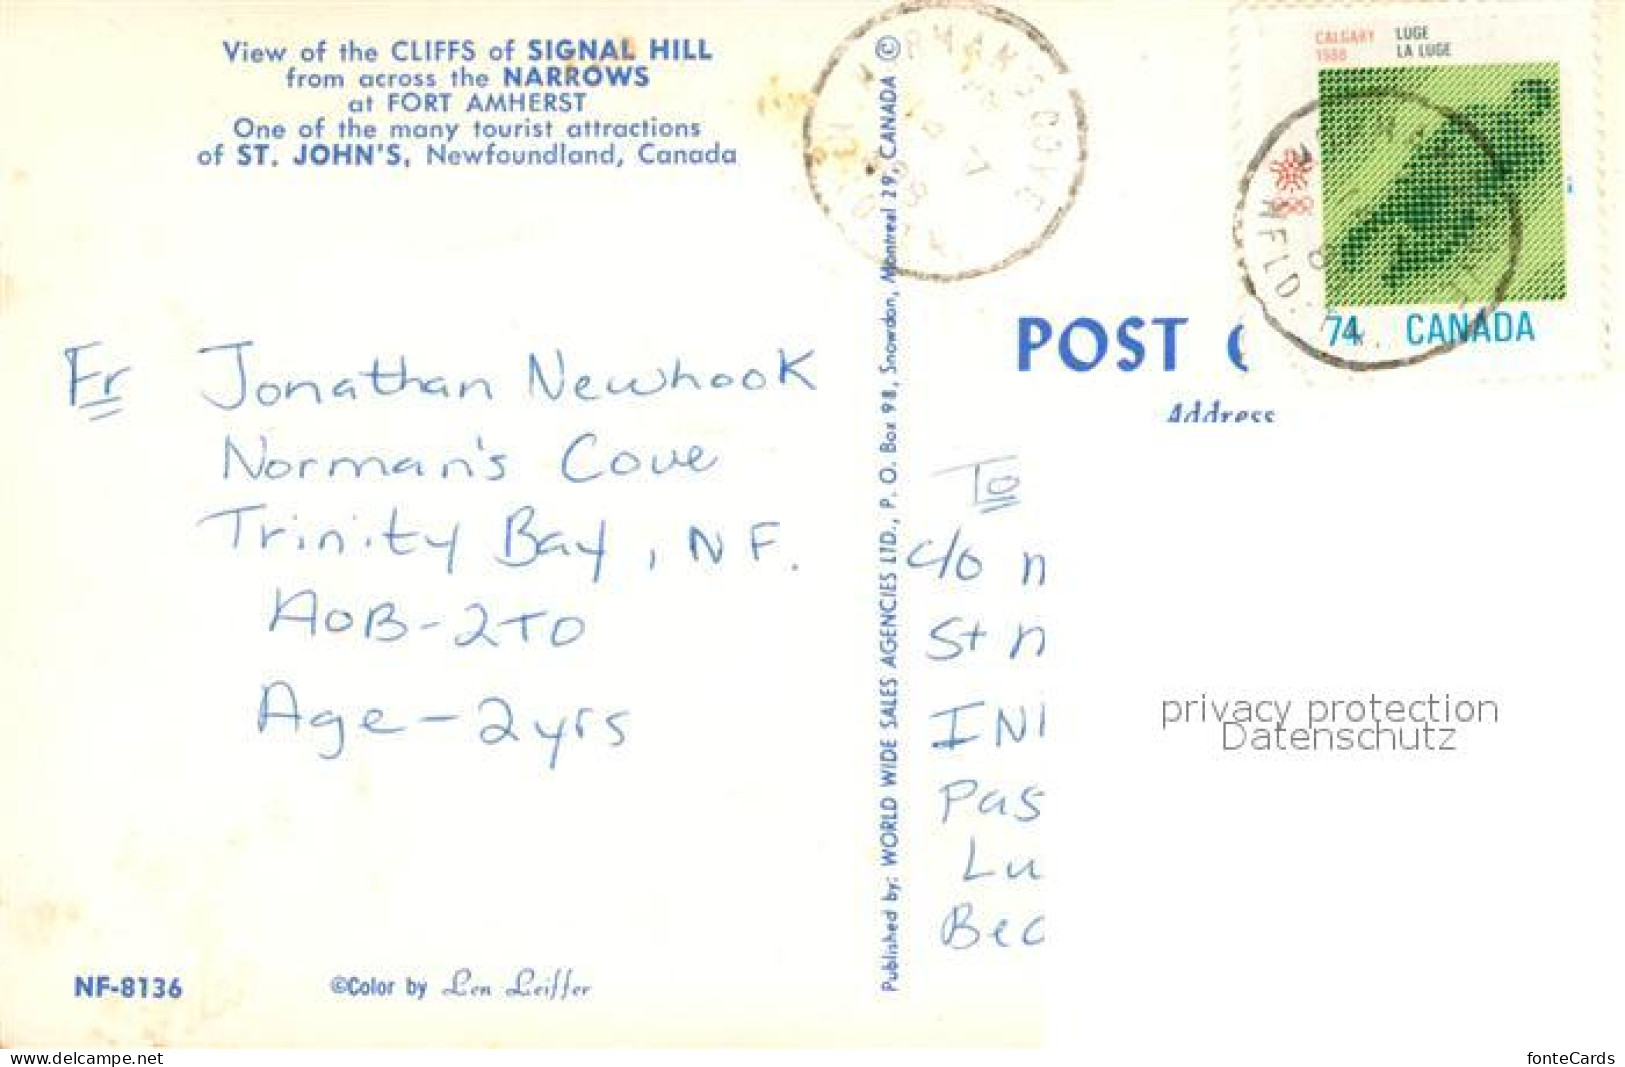 View of the CLIFFS of SIGNAL HILL
from across the NARROWS
at FORT AMHERST
One of the many tourist attractions
of ST. JOHN'S, Newfoundland, Canada
Fr Jonathan Newhook
Norman's Cove
Trinity Bay, NF.
A0B-2T0
Age - 2 yrs
NF-8136
©Color by Len Leiffer
Published by: WORLD WIDE SALES AGENCIES LTD., P. O. Box 98, Snowdon, Montreal 29, CANADA ©
CALGARY 1988
LUGE
LA LUGE
74 CANADA
NFLD.
POST
Address
To
c/o
St
INI
Pas
Lu
Bec
privacy protection
Datenschutz
www.delcampe.net
fonteCards